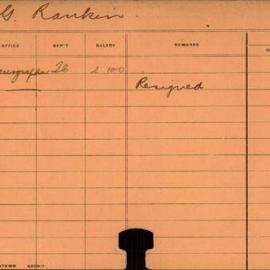 G. Rankin
OFFICE DEP'T SALARY REMARKS
26 2 100
Resigned